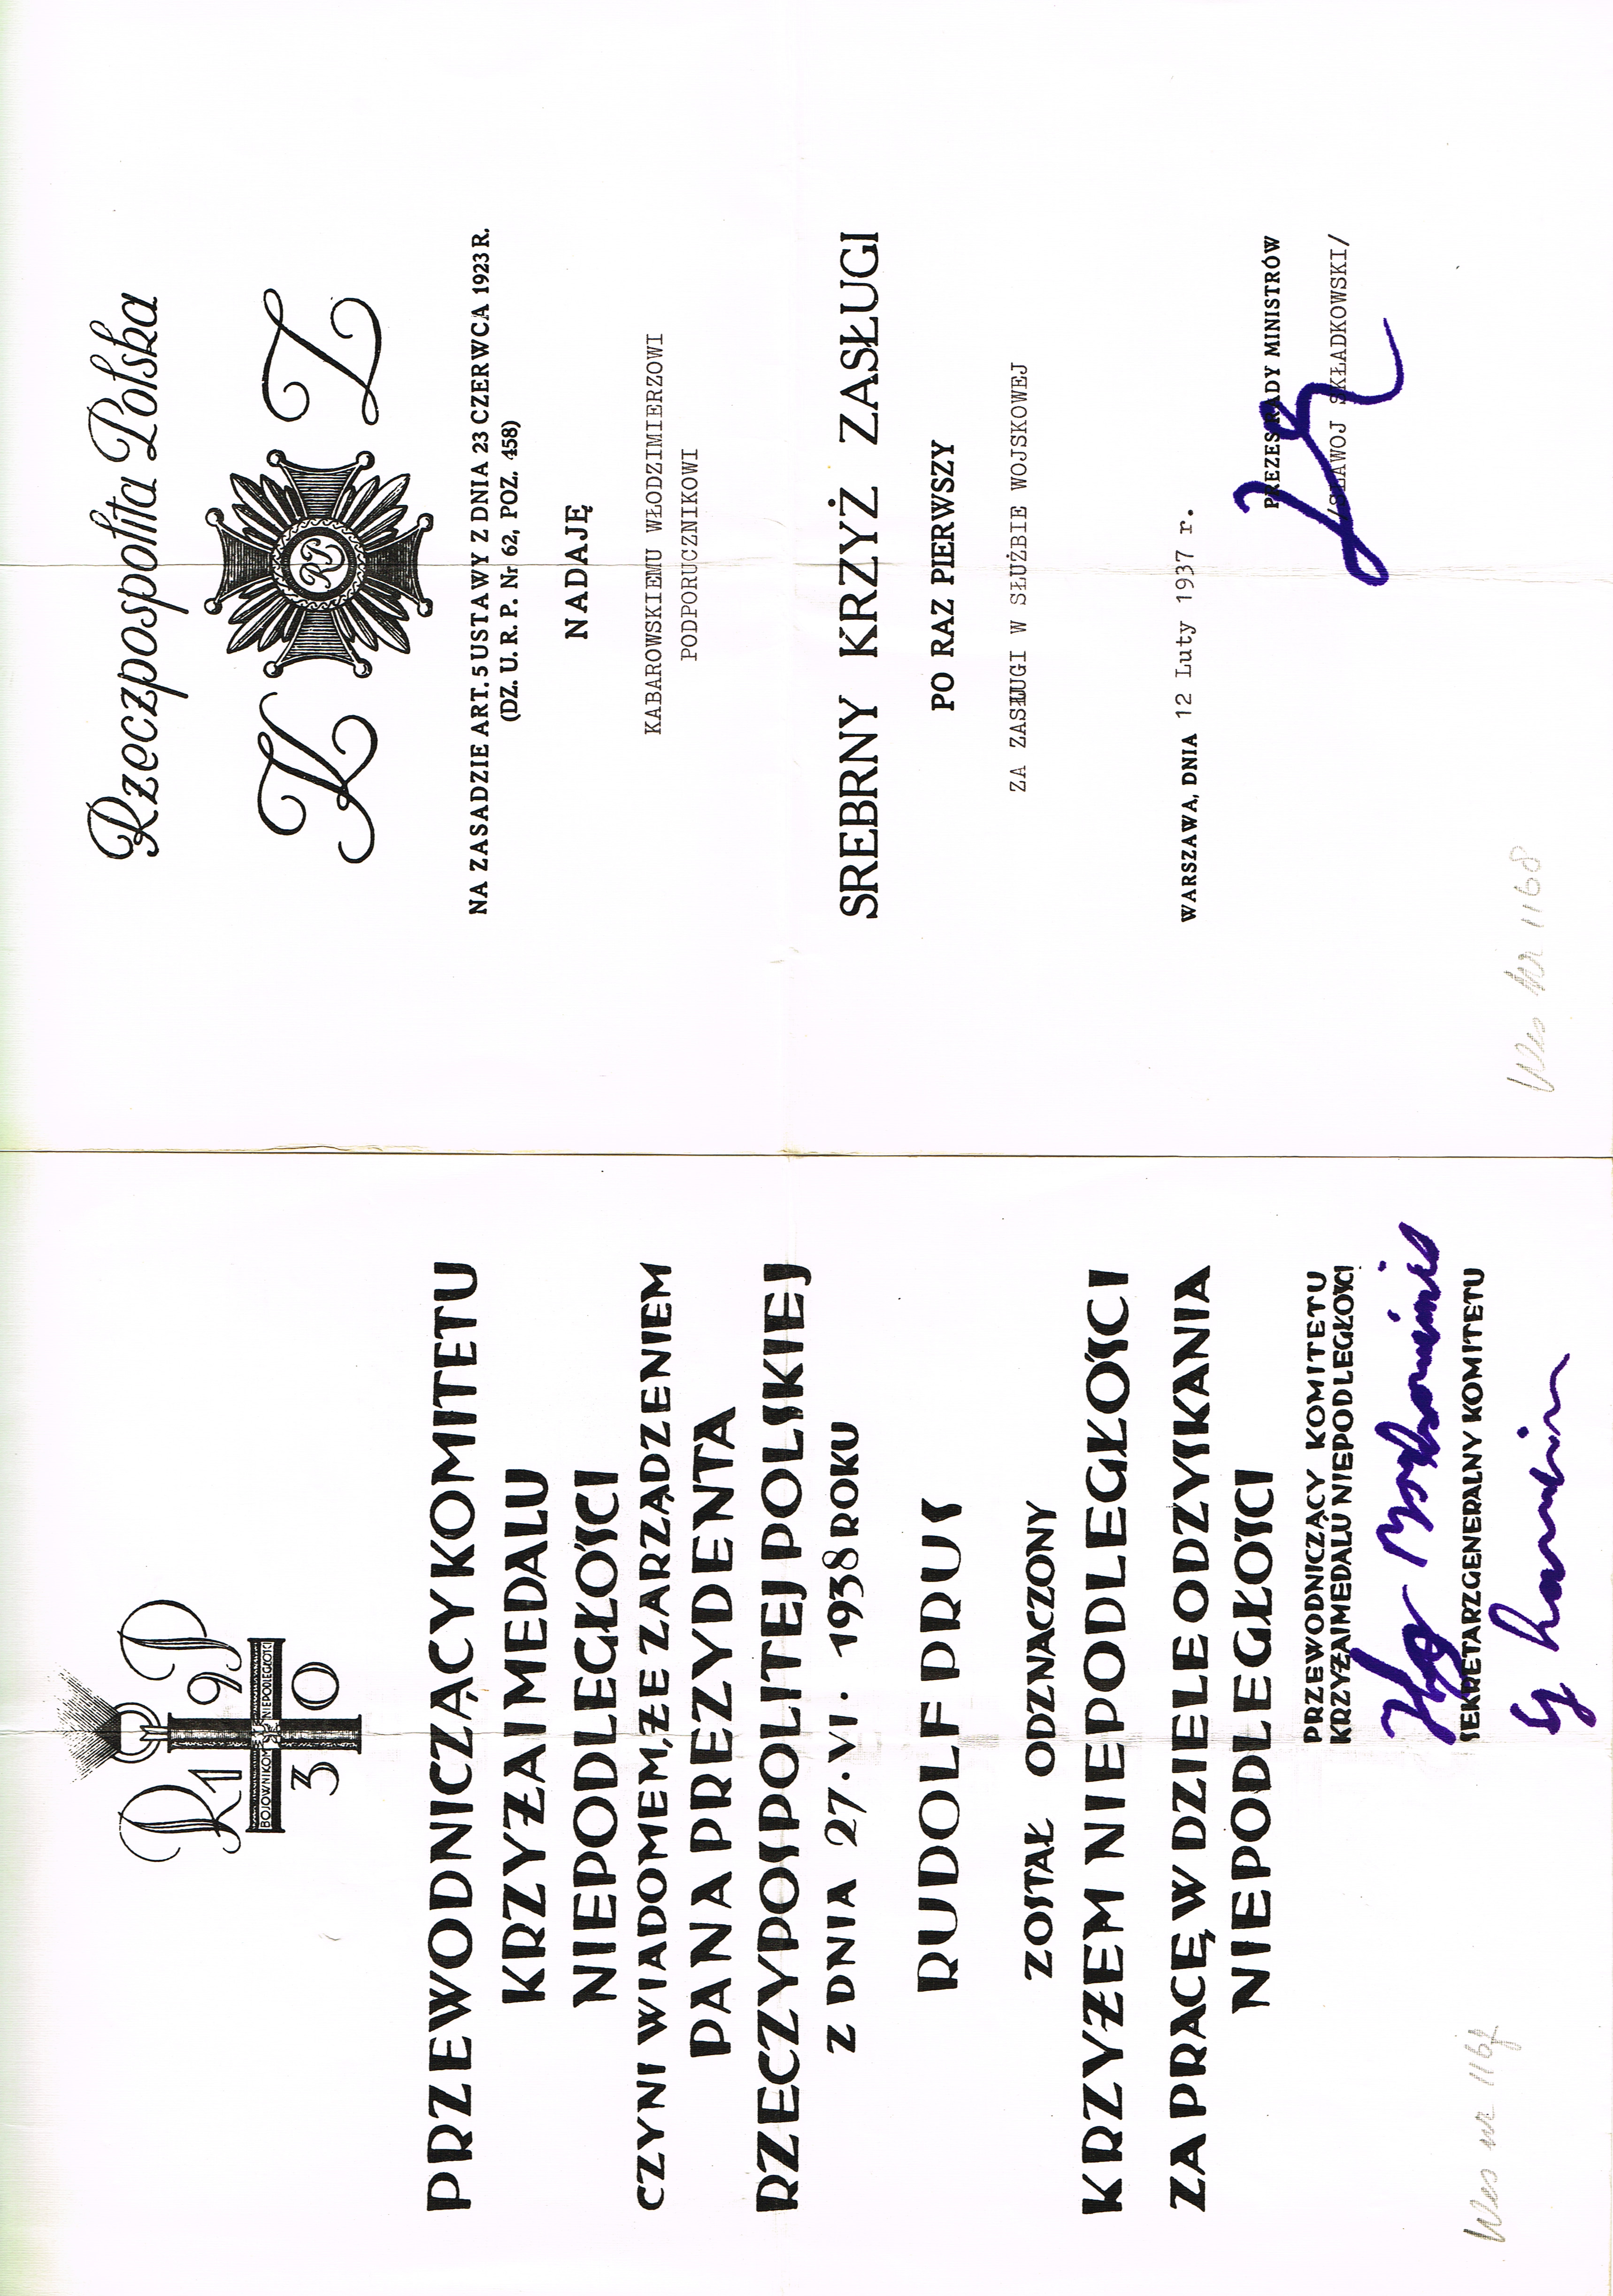 R P
19
BOJOWNIKOM NIEPODLEGŁOŚCI
30
PRZEWODNICZĄCY KOMITETU
KRZYŻA I MEDALU
NIEPODLEGŁOŚCI
CZYNI WIADOMEM, ŻE ZARZĄDZENIEM
PANA PREZYDENTA
RZECZYPOSPOLITEJ POLSKIEJ
Z DNIA 27.VI. 1938 ROKU
RUDOLF PRUS
ZOSTAŁ ODZNACZONY
KRZYŻEM NIEPODLEGŁOŚCI
ZA PRACĘ W DZIELE ODZYSKANIA
NIEPODLEGŁOŚCI
PRZEWODNICZĄCY KOMITETU
KRZYŻA I MEDALU NIEPODLEGŁOŚCI
SEKRETARZ GENERALNY KOMITETU
Wes nr 1167
Rzeczpospolita Polska
K Z
RP
NA ZASADZIE ART. 5 USTAWY Z DNIA 23 CZERWCA 1923 R.
(DZ. U. R. P. Nr 62, POZ. 458)
NADAJĘ
KABAROWSKIEMU WŁODZIMIERZOWI
PODPORUCZNIKOWI
SREBRNY KRZYŻ ZASŁUGI
PO RAZ PIERWSZY
ZA ZASŁUGI W SŁUŻBIE WOJSKOWEJ
WARSZAWA, DNIA 12 Luty 1937 r.
PREZES RADY MINISTRÓW
/SŁAWOJ SKŁADKOWSKI/
Wes nr 1168